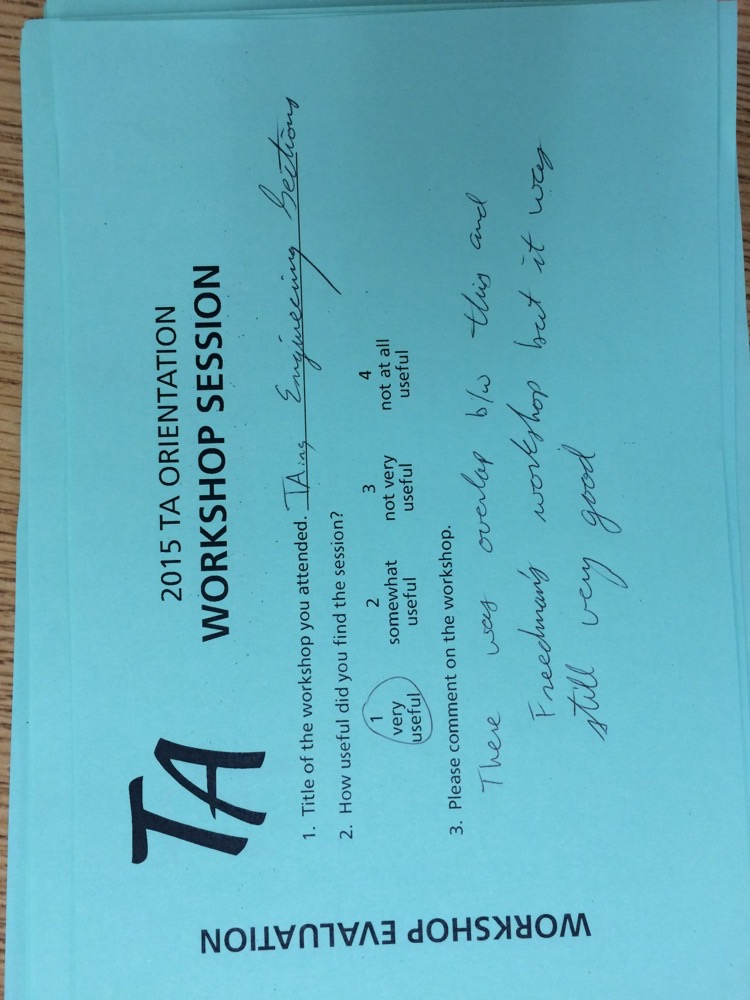 TA
2015 TA ORIENTATION
WORKSHOP SESSION
1. Title of the workshop you attended. TAing Engineering Sections
2. How useful did you find the session?
1 2 3 4
very somewhat not very not at all
useful useful useful useful
3. Please comment on the workshop.
There was overlap b/w this and
Freedman's workshop but it was
still very good
WORKSHOP EVALUATION